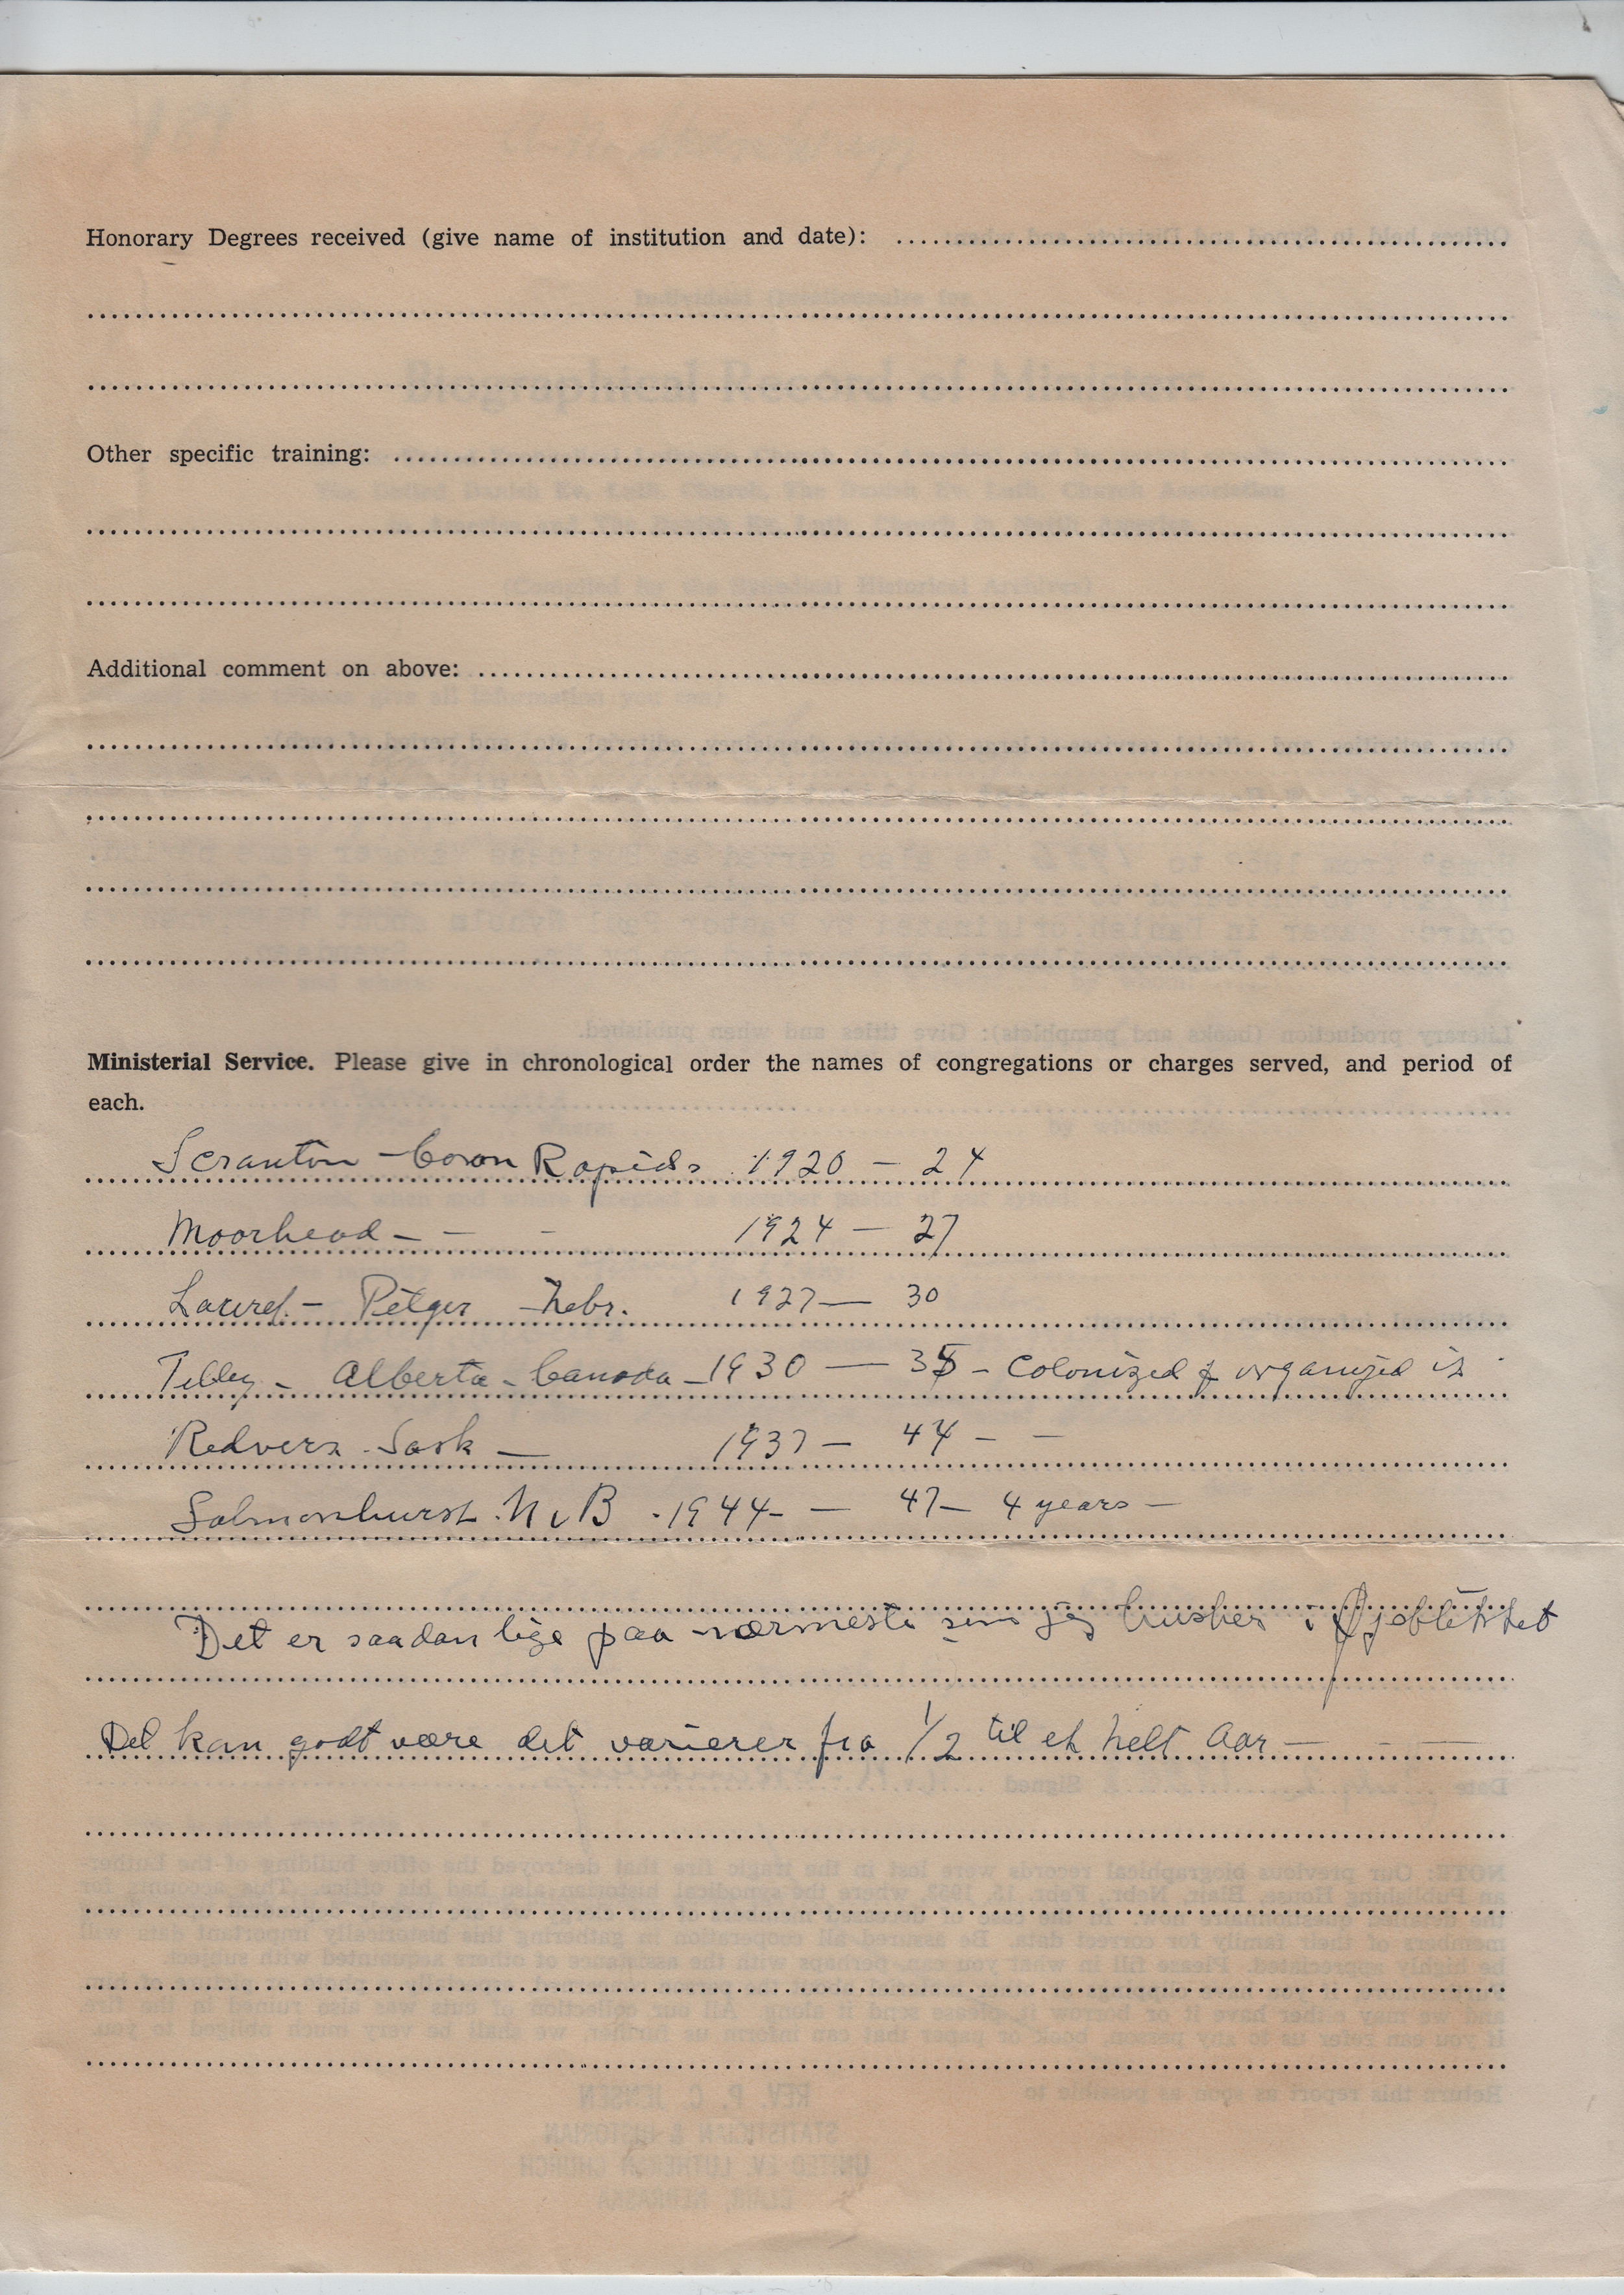 Honorary Degrees received (give name of institution and date):
Other specific training:
Additional comment on above:
Ministerial Service. Please give in chronological order the names of congregations or charges served, and period of
each.
Scranton - Coon Rapids 1920 - 24
Moorhead - - - 1924 - 27
Laurel - Pilger - Nebr. 1927 - 30
Tilley - Alberta - Canada - 1930 - 35 - Colonized & organized it
Redvers. Sask - 1937 - 44 - -
Salmonhurst. N. B. 1944 - 47 - 4 years -
Det er saadan lige paa nærmeste som jeg husker i Øjeblikket
Det kan godt være det varierer fra 1/2 til et helt Aar - - -